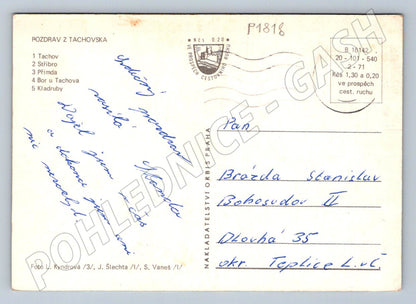 P1818
POZDRAV Z TACHOVSKA
1 Tachov
2 Stříbro
3 Přimda
4 Bor u Tachova
5 Kladruby
Kčs 0,20
VE PROSPĚCH CESTOVNÍHO RUCHU
B 16142
20 - 101 - 540
2 - 71
Kčs 1,30 a 0,20
ve prospěch
cest. ruchu
Srdečný pozdrav
zasílá Standa
Dojel jsem v čas
a dokonce jsem ani
nic
Pan
Brázda Stanislav
Bohosudov II
Dlouhá 35
okr. Teplice L.v.Č.
NAKLADATELSTVÍ ORBIS PRAHA
Foto L. Kyndrová /3/, J. Šlechta /1/, S. Vaneš /1/
POHLEDNICE - GASH